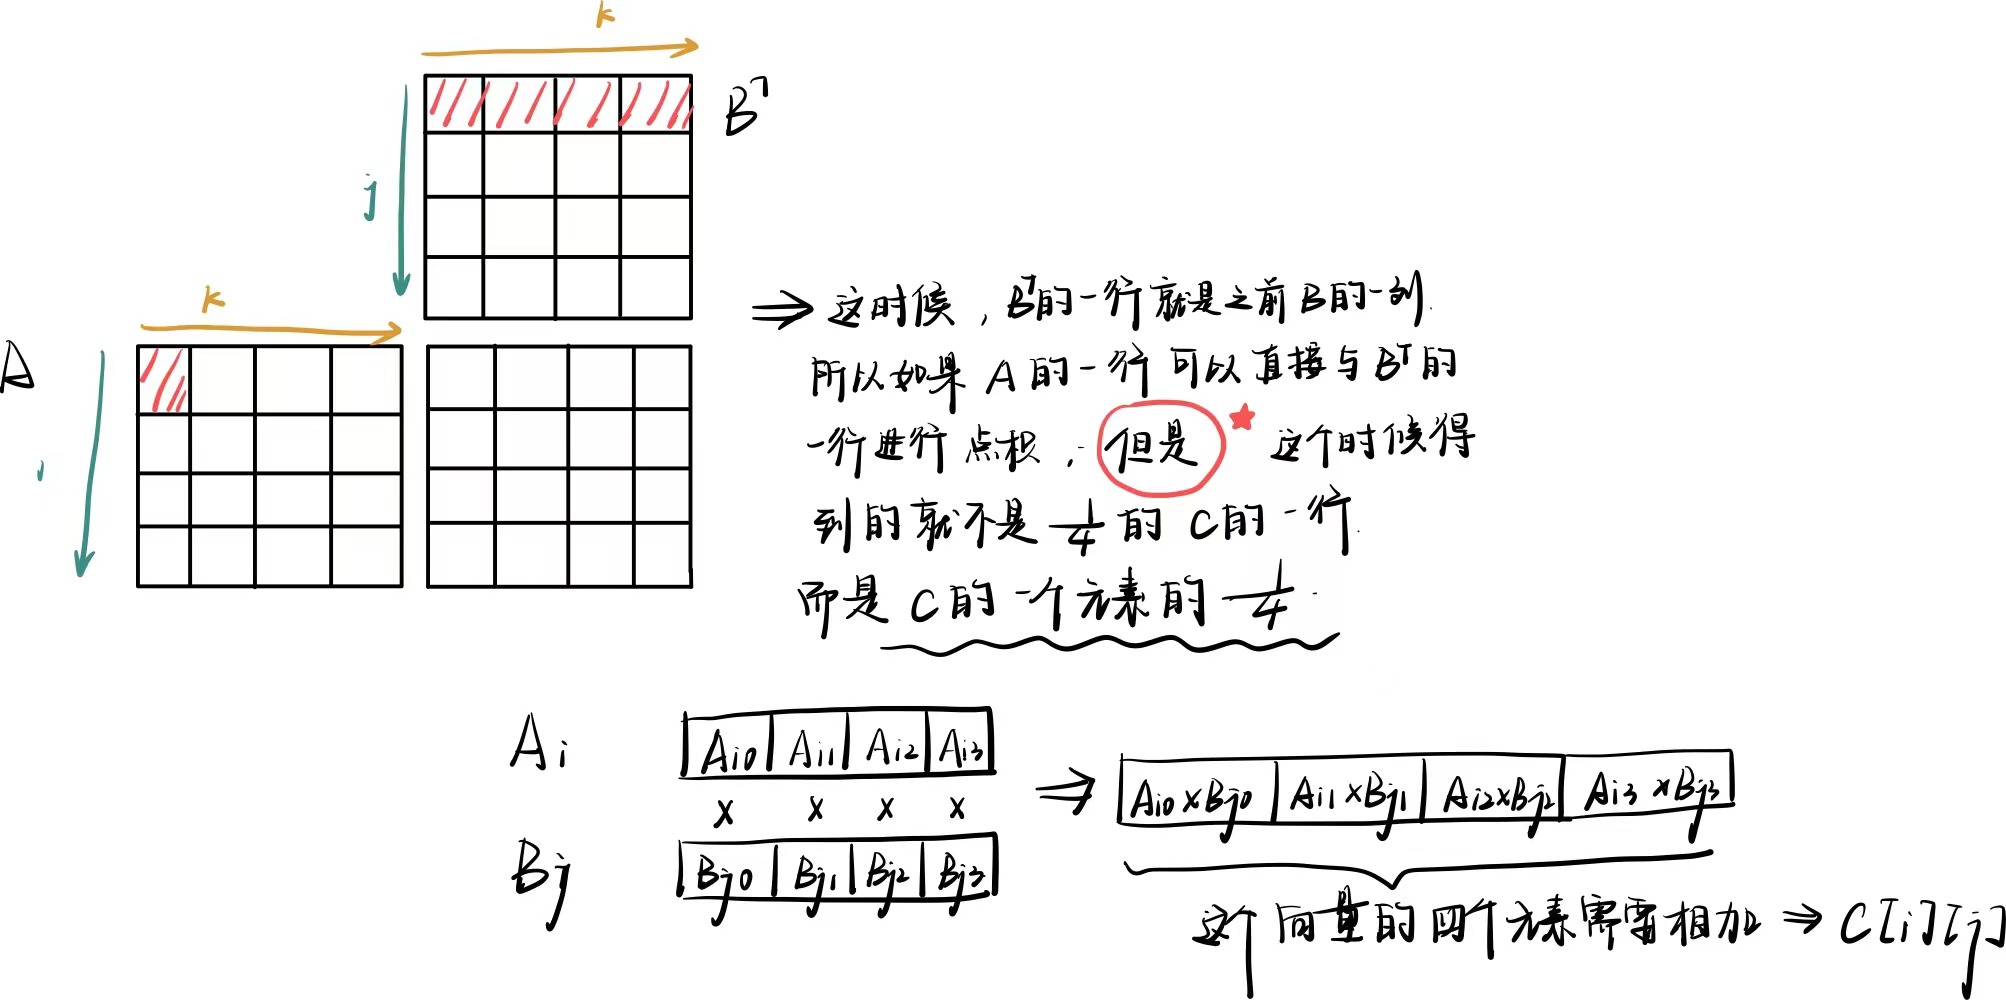 k
Bᵀ
j
k
A
⇒ 这时候，Bᵀ的一行就是之前B的一列.
所以如果 A 的一行可以直接与 Bᵀ的
一行进行点积，但是★ 这个时候得
到的就不是 1/4 的 C的一行.
而是 C的一个元素的 1/4.
Ai Ai0 Ai1 Ai2 Ai3
x x x x ⇒ Ai0 x Bj0 Ai1 x Bj1 Ai2 x Bj2 Ai3 x Bj3
Bj Bj0 Bj1 Bj2 Bj3
这个向量的四个元素需要相加 ⇒ C[i][j]